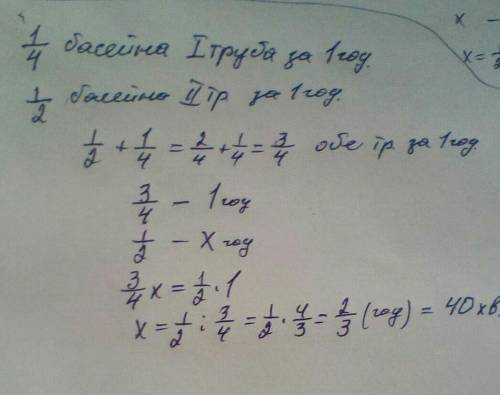 x -
x = 
1/4 басейна I труба за 1 год.
1/2 басейна II тр. за 1 год.
1/2 + 1/4 = 2/4 + 1/4 = 3/4 обе тр. за 1 год
3/4 - 1 год
1/2 - x год
3/4 x = 1/2 · 1
x = 1/2 : 3/4 = 1/2 · 4/3 = 2/3 (год) = 40 хв.